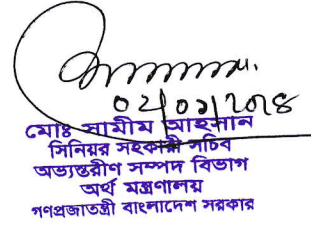 ০২/০১/২০২৪
মোঃ সামীম আহসান
সিনিয়র সহকারী সচিব
অভ্যন্তরীণ সম্পদ বিভাগ
অর্থ মন্ত্রণালয়
গণপ্রজাতন্ত্রী বাংলাদেশ সরকার